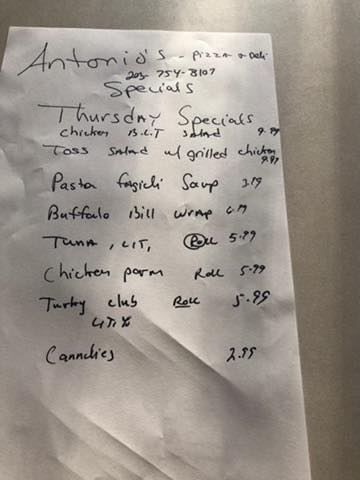 Antonio's - Pizza & Deli
203-754-8107
Specials
Thursday Specials
Chicken B.L.T Salad 9.99
Toss Salad w/ grilled chicken
9.99
Pasta fagioli Soup 3.19
Buffalo Bill Wrap 6.19
Tuna, L,T, Roll 5.99
Chicken parm Roll 5.99
Turky club Roll 5.99
Canndies 2.99